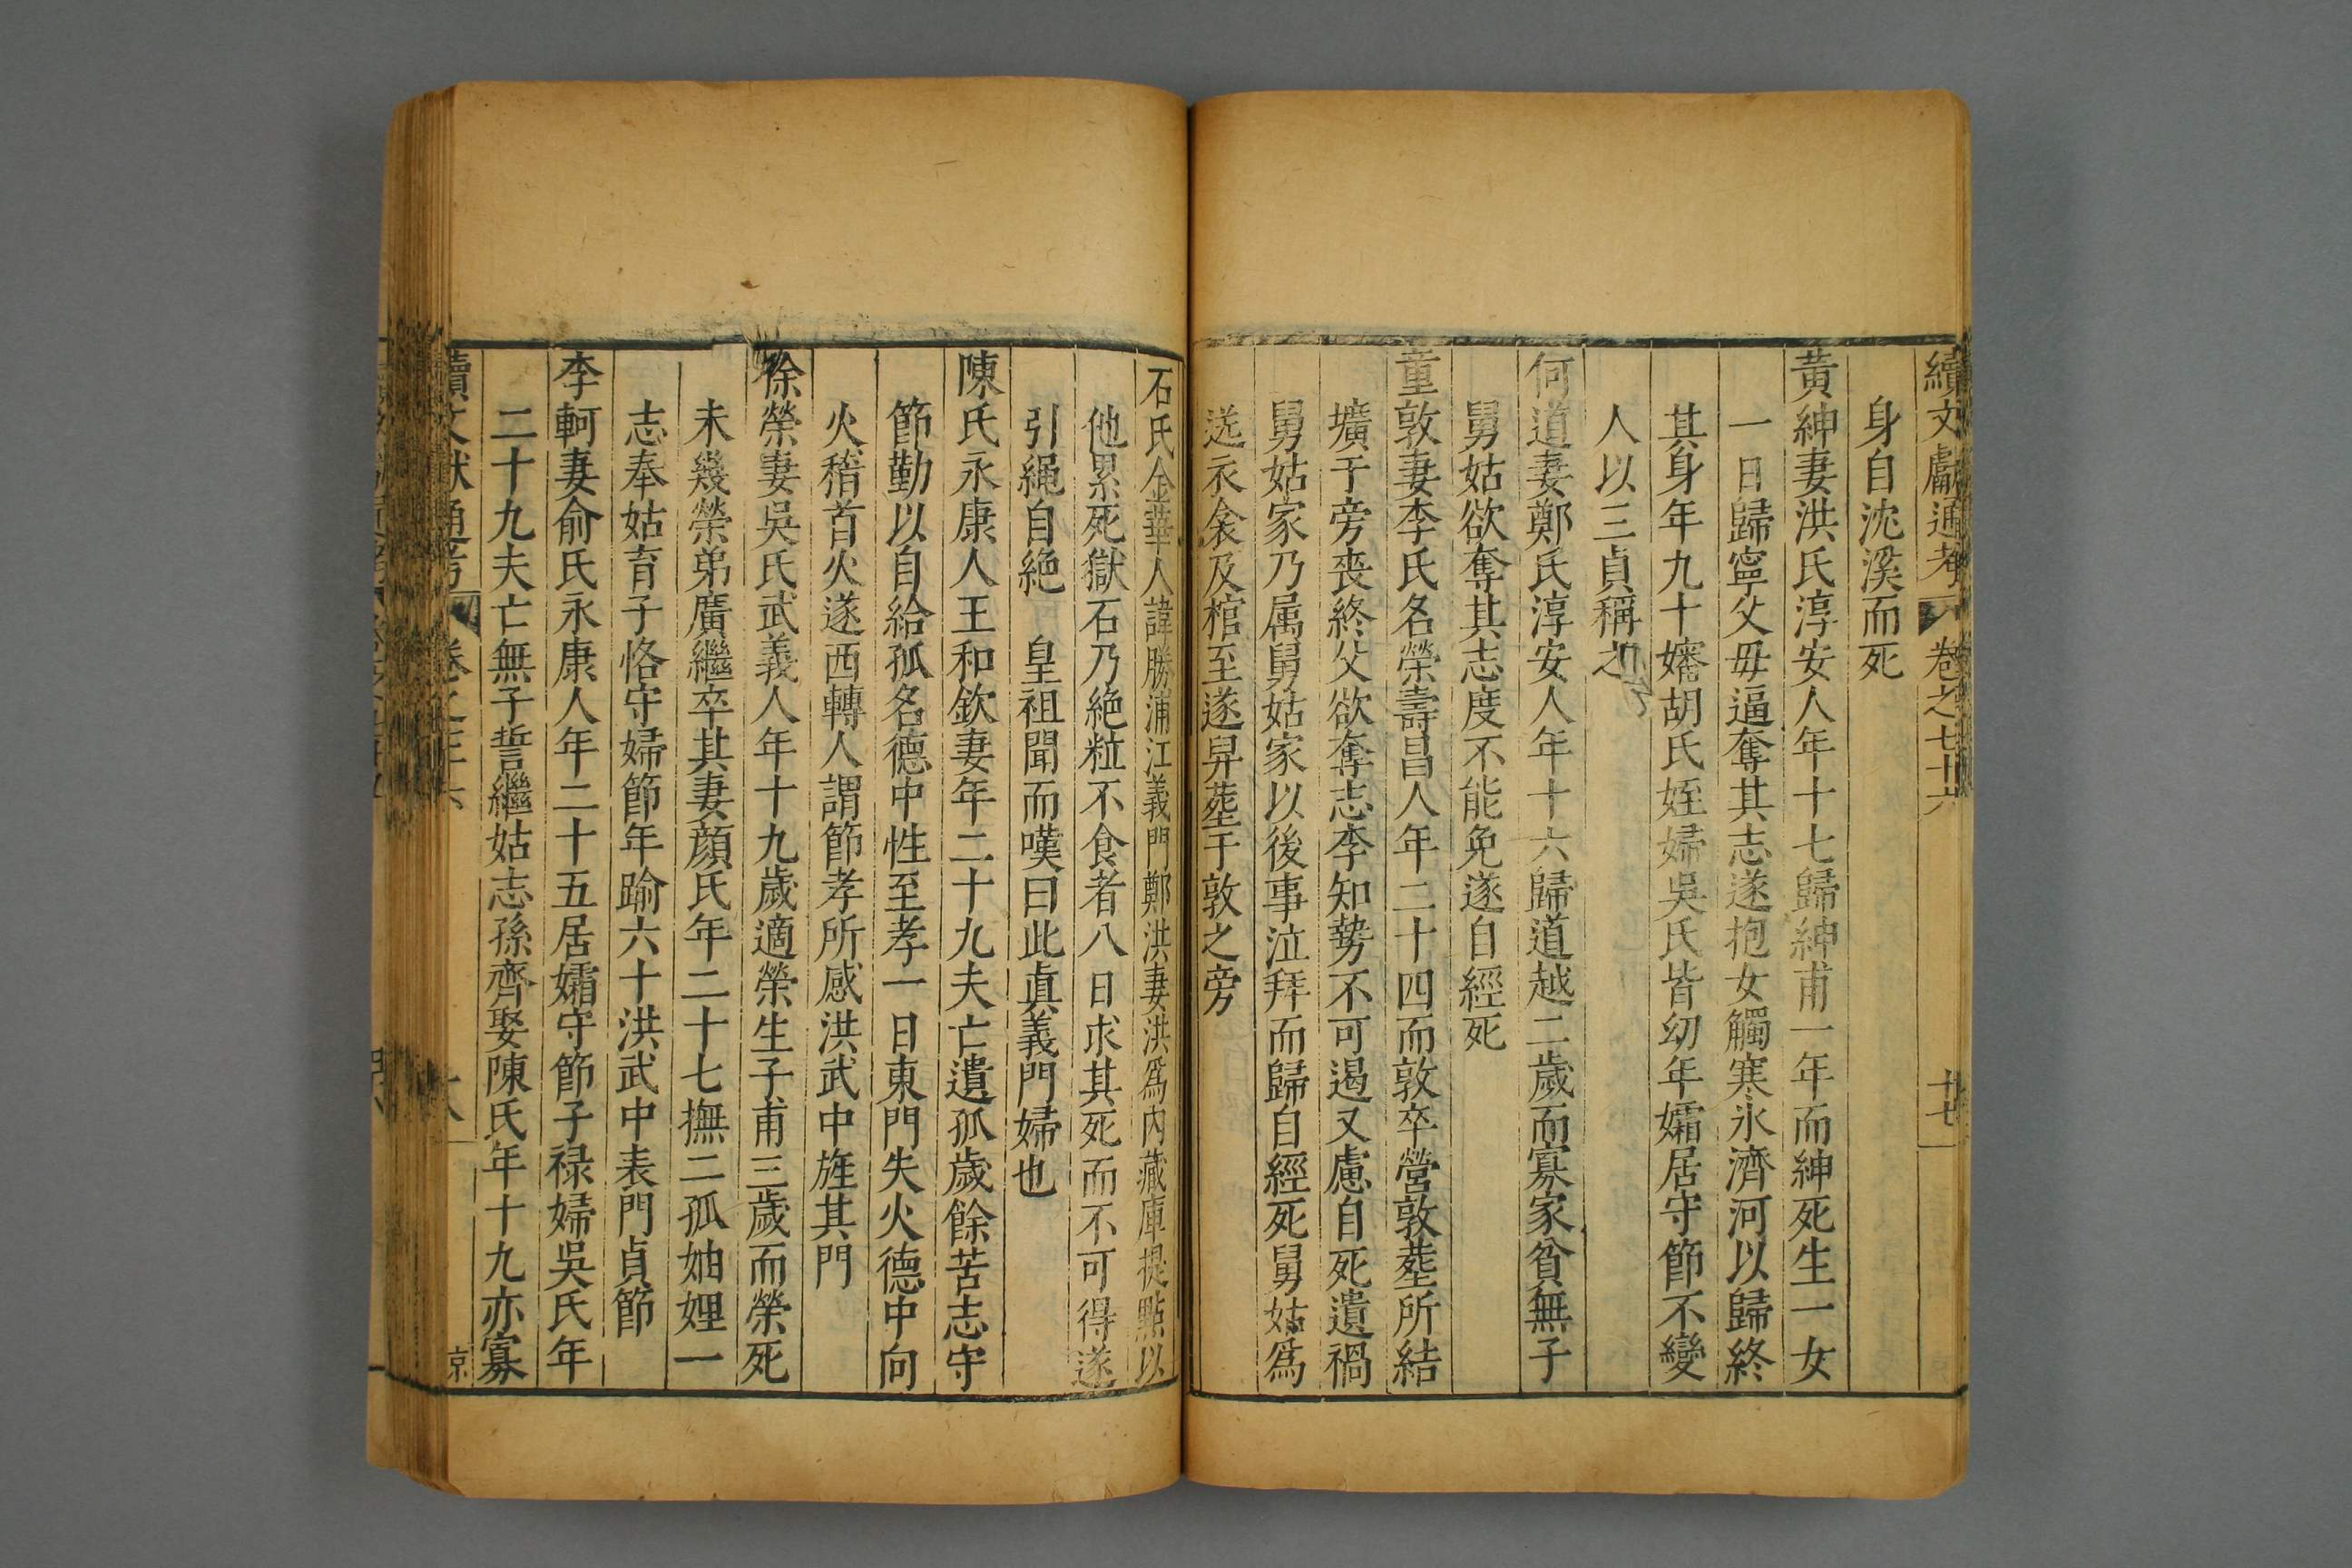 續文獻通考 卷之七十六 十七
身自沈溪而死
黃紳妻洪氏淳安人年十七歸紳甫一年而紳死生一女
一日歸寧父毋逼奪其志遂抱女觸寒氷濟河以歸終
其身年九十嬸胡氏姪婦吳氏皆幼年孀居守節不變
人以三貞稱之
何道妻鄭氏淳安人年十六歸道越二歲而寡家貧無子
舅姑欲奪其志度不能免遂自經死
童敦妻李氏名榮壽昌人年二十四而敦卒營敦塟所結
壙于旁喪終父欲奪志李知勢不可遏又慮自死遺禍
舅姑家乃属舅姑家以後事泣拜而歸自經死舅姑爲
送衣衾及棺至遂舁塟于敦之旁
石氏金華人諱勝浦江義門鄭洪妻洪爲內藏庫提㸃以
他累死獄石乃絶粒不食者八日求其死而不可得遂
引繩自絶 皇祖聞而嘆曰此眞義門婦也
陳氏永康人王和欽妻年二十九夫亡遺孤歲餘苦志守
節勤以自給孤名德中性至孝一日東門失火德中向
火稽首火遂西轉人謂節孝所感洪武中旌其門
徐榮妻吳氏武義人年十九歲適榮生子甫三歲而榮死
未幾榮弟廣繼卒其妻顔氏年二十七撫二孤妯娌一
志奉姑育子恪守婦節年踰六十洪武中表門貞節
李軻妻俞氏永康人年二十五居孀守節子禄婦吳氏年
二十九夫亡無子誓繼姑志孫齊娶陳氏年十九亦寡
續文獻通考 卷之七十六 京